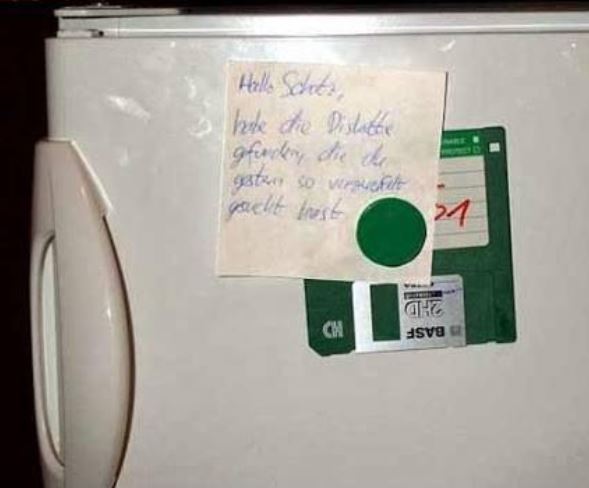 Hallo Schatz,
habe die Diskette
gefunden, die du
gestern so verzweifelt
gesucht hast.
PROTECT
21
EXTRA
2HD
BASF
HD